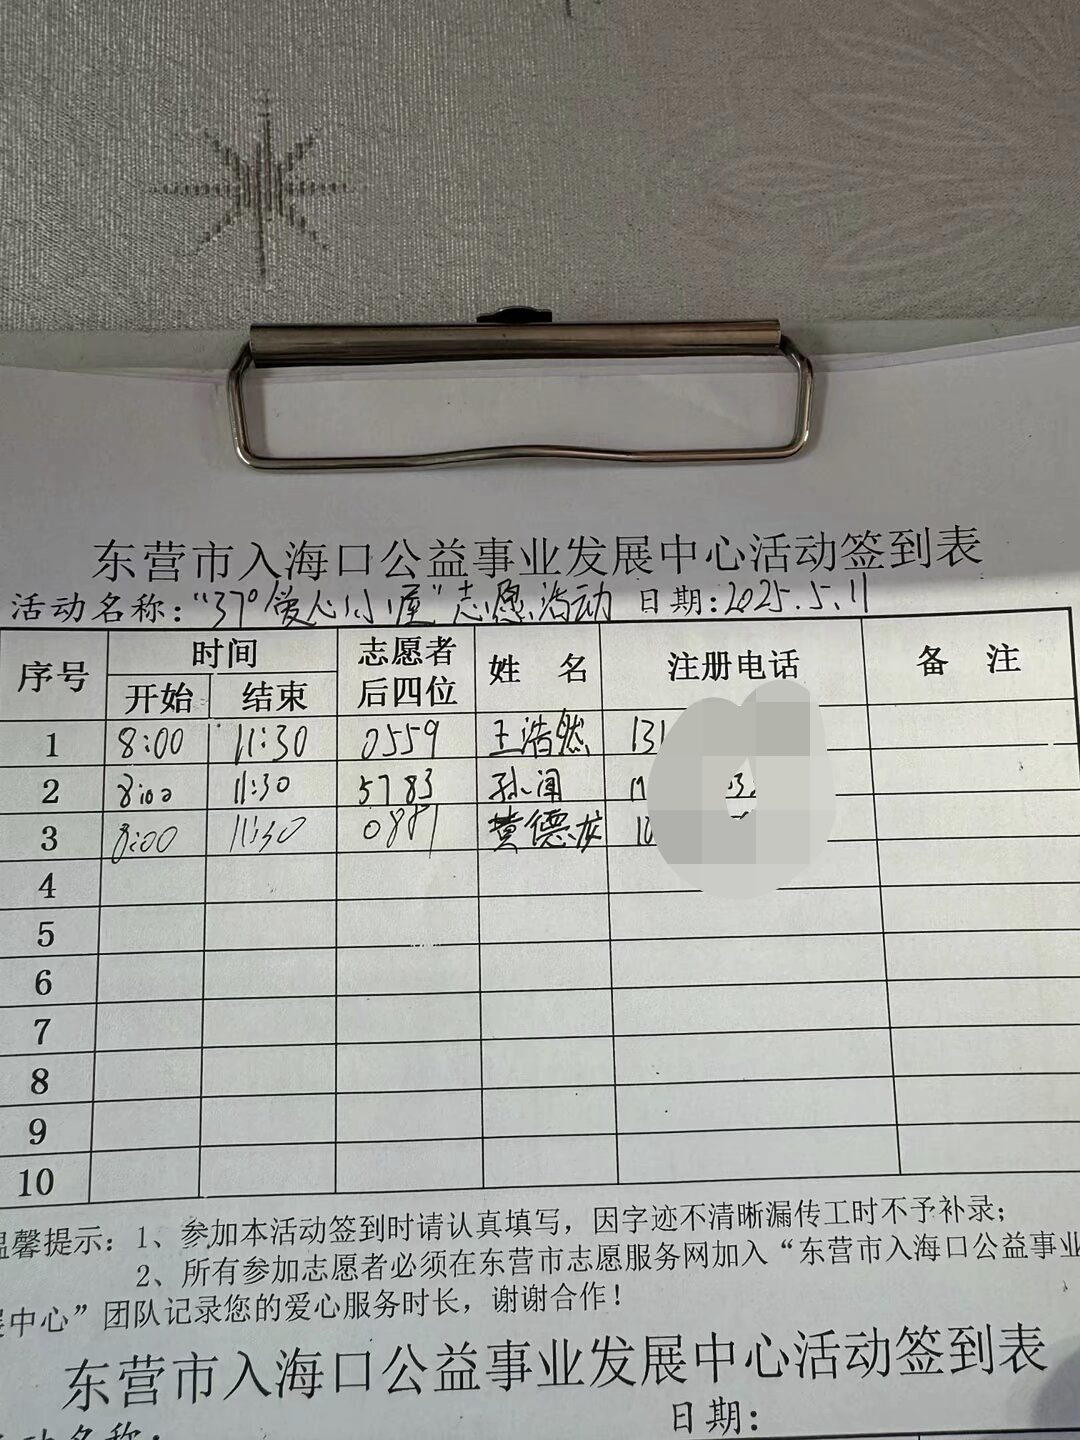 东营市入海口公益事业发展中心活动签到表
活动名称：“37°爱心小屋”志愿活动 日期：2025.5.11
序号 时间 志愿者后四位 姓 名 注册电话 备 注
开始 结束
1 8:00 11:30 0559 王浩然 131
2 8:00 11:30 5783 孙闻
3 8:00 11:30 0881 黄德龙
4
5
6
7
8
9
10
温馨提示：1、参加本活动签到时请认真填写，因字迹不清晰漏传工时不予补录；
2、所有参加志愿者必须在东营市志愿服务网加入“东营市入海口公益事业
展中心”团队记录您的爱心服务时长，谢谢合作！
东营市入海口公益事业发展中心活动签到表
活动名称： 日期：